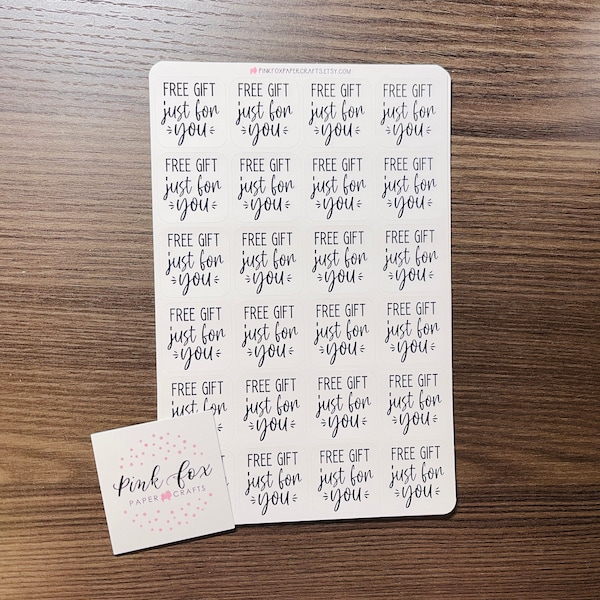 PINKFOXPAPERCRAFTS.ETSY.COM
FREE GIFT FREE GIFT FREE GIFT FREE GIFT
just for just for just for just for
you you you you
FREE GIFT FREE GIFT FREE GIFT FREE GIFT
just for just for just for just for
you you you you
FREE GIFT FREE GIFT FREE GIFT FREE GIFT
just for just for just for just for
you you you you
FREE GIFT FREE GIFT FREE GIFT FREE GIFT
just for just for just for just for
you you you you
FREE GIFT FREE GIFT FREE GIFT FREE GIFT
just for just for just for just for
you you you
FREE GIFT FREE GIFT FREE GIFT
just for just for just for
you you you
Pink Fox
PAPER CRAFTS